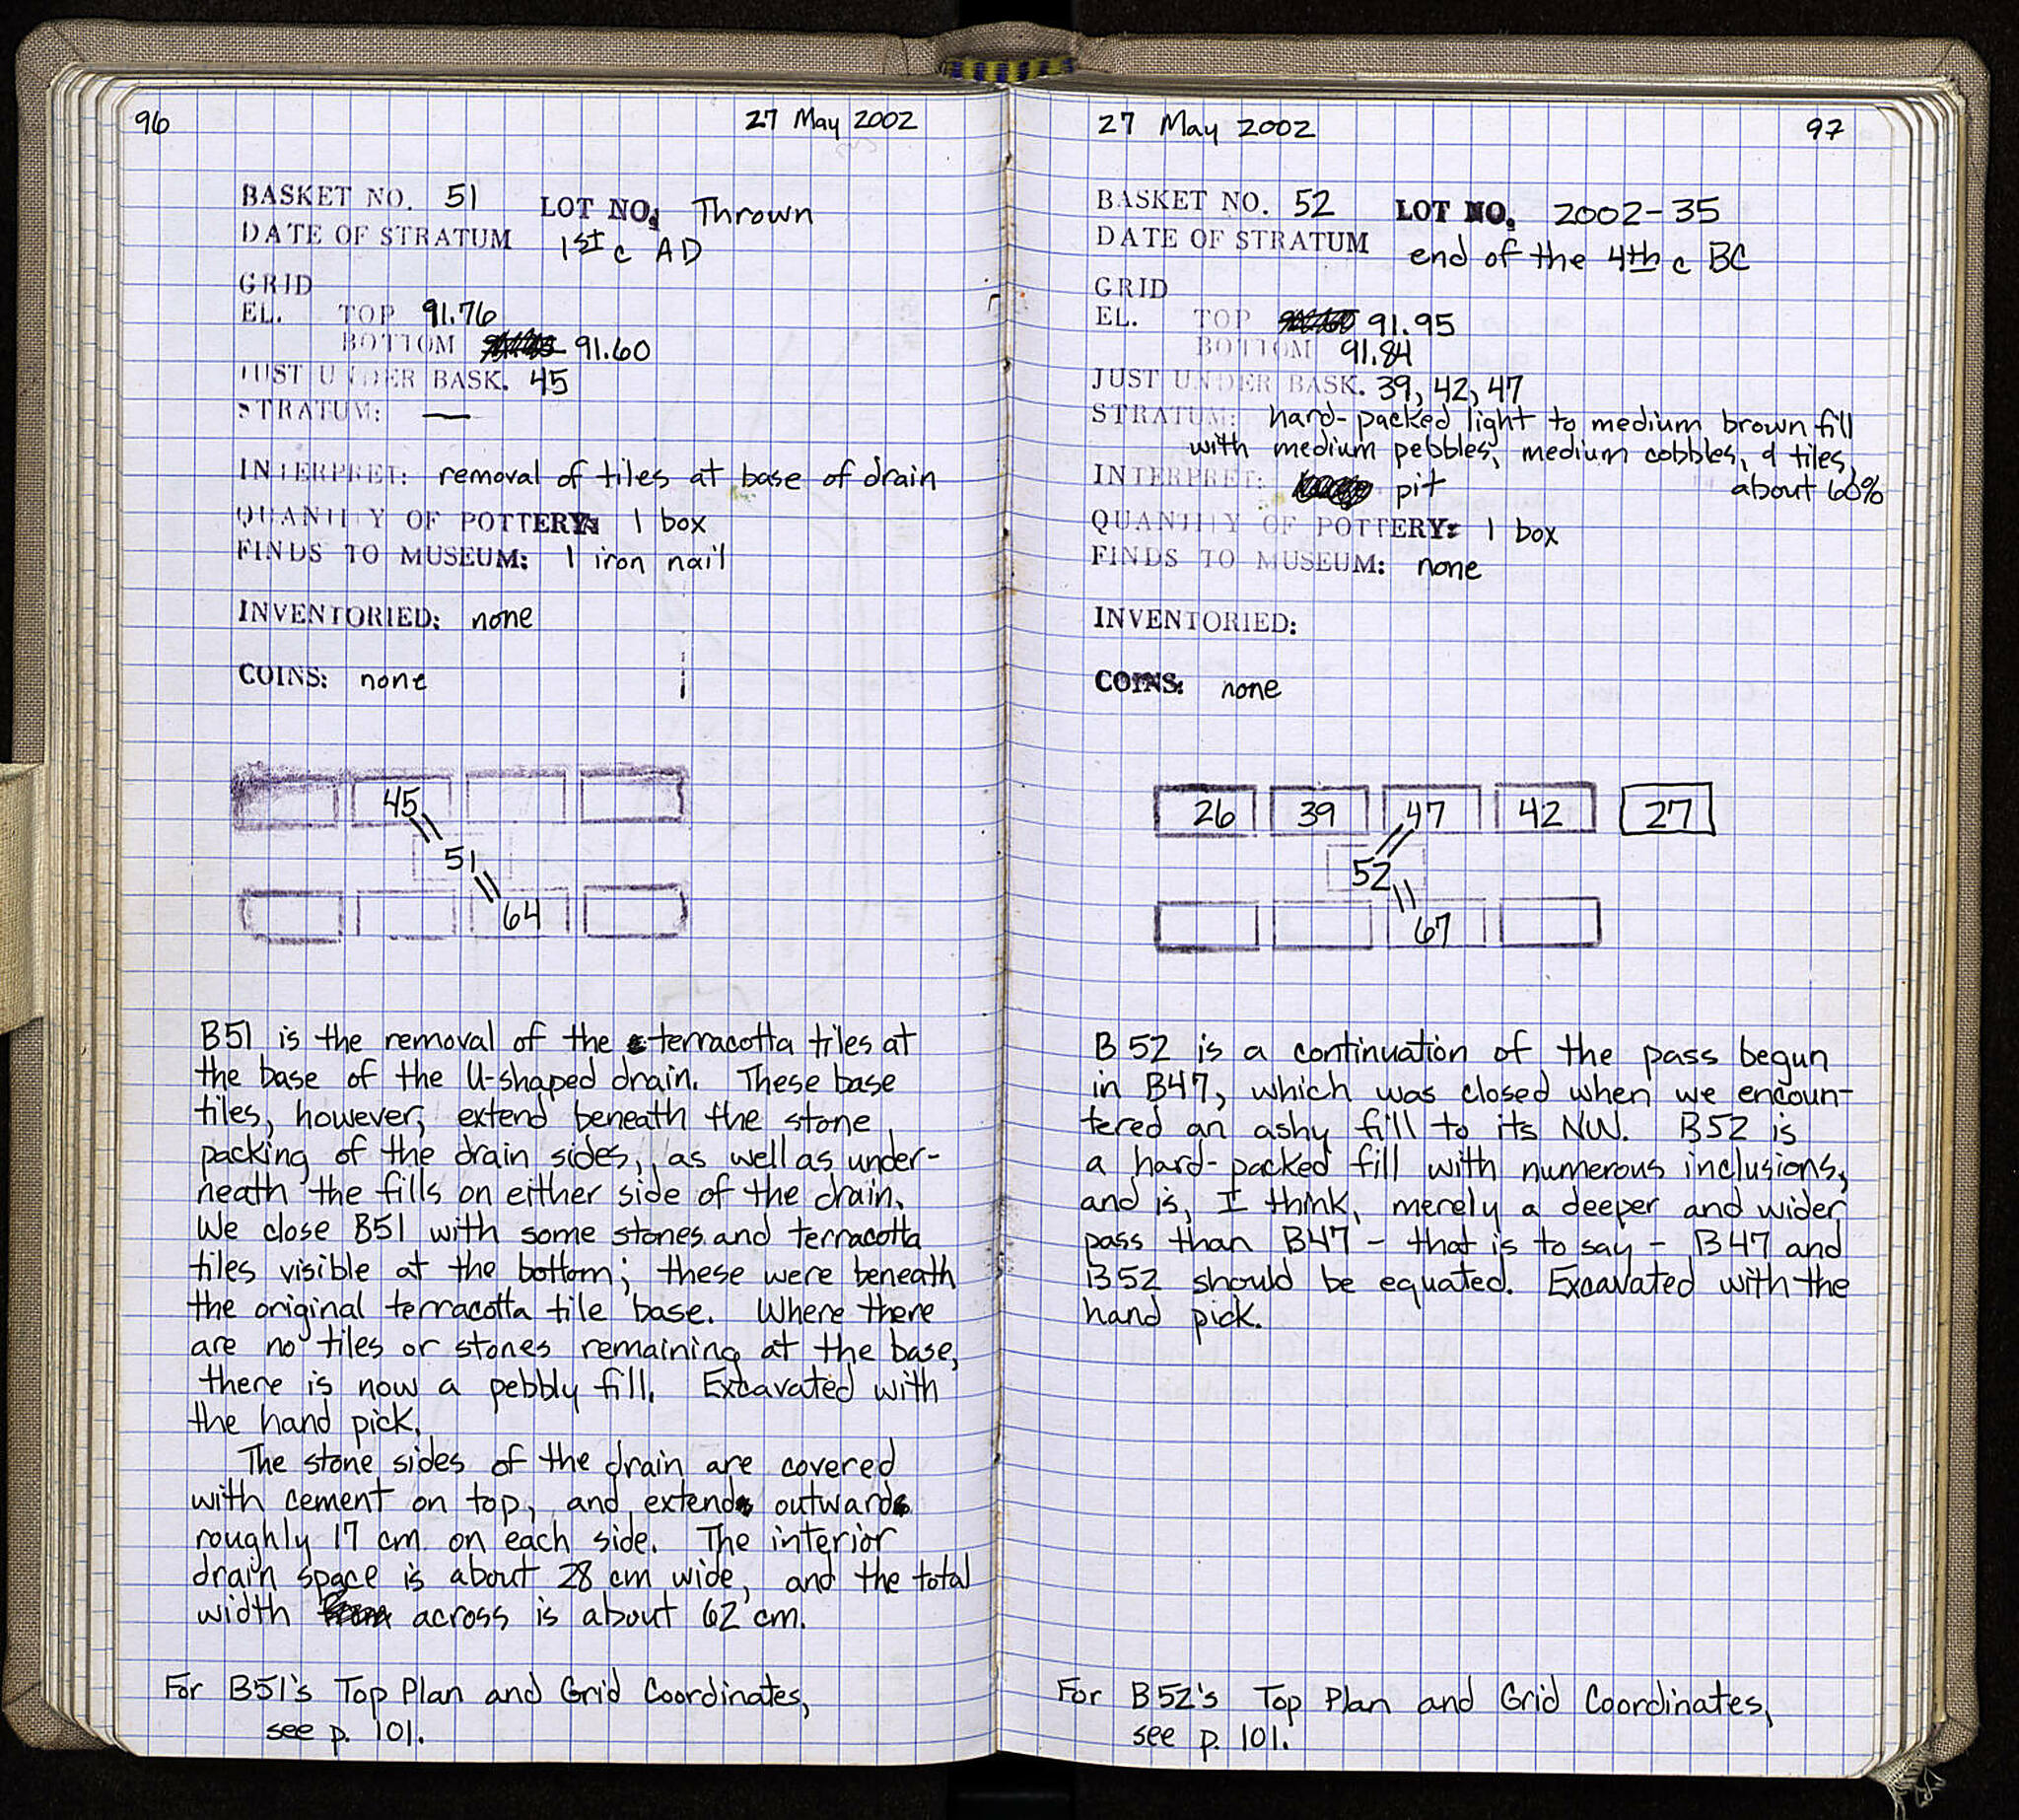 96
27 May 2002
BASKET NO. 51 LOT NO. Thrown
DATE OF STRATUM 1st c AD
GRID
EL. TOP 91.76
BOTTOM 91.60
JUST UNDER BASK. 45
STRATUM: —
INTERPRET: removal of tiles at base of drain
QUANTITY OF POTTERY: 1 box
FINDS TO MUSEUM: 1 iron nail
INVENTORIED: none
COINS: none
45
51
64
B51 is the removal of the terracotta tiles at
the base of the U-shaped drain. These base
tiles, however, extend beneath the stone
packing of the drain sides, as well as under-
neath the fills on either side of the drain.
We close B51 with some stones and terracotta
tiles visible at the bottom; these were beneath
the original terracotta tile base. Where there
are no tiles or stones remaining at the base,
there is now a pebbly fill. Excavated with
the hand pick.
The stone sides of the drain are covered
with cement on top, and extend outward
roughly 17 cm on each side. The interior
drain space is about 28 cm wide, and the total
width across is about 62 cm.
For B51's Top Plan and Grid Coordinates,
see p. 101.
27 May 2002
97
BASKET NO. 52 LOT NO. 2002-35
DATE OF STRATUM end of the 4th c BC
GRID
EL. TOP 91.95
BOTTOM 91.84
JUST UNDER BASK. 39, 42, 47
STRATUM: hard-packed light to medium brown fill
with medium pebbles, medium cobbles, & tiles,
about 60%
INTERPRET: pit
QUANTITY OF POTTERY: 1 box
FINDS TO MUSEUM: none
INVENTORIED:
COINS: none
26 39 47 42 27
52
67
B52 is a continuation of the pass begun
in B47, which was closed when we encoun-
tered an ashy fill to its NW. B52 is
a hard-packed fill with numerous inclusions,
and is, I think, merely a deeper and wider
pass than B47 - that is to say - B47 and
B52 should be equated. Excavated with the
hand pick.
For B52's Top Plan and Grid Coordinates,
see p. 101.